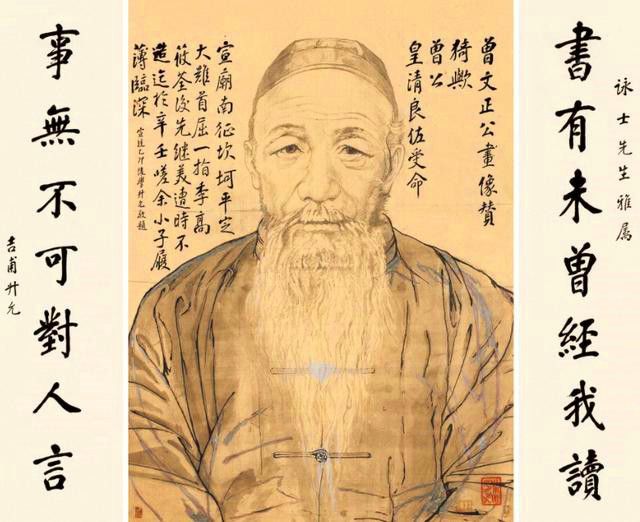 詠士先生雅属
書有未曾經我讀
曾文正公畫像贊
猗歟
曾公
皇清良佐受命
宣廟南征坎坷平定
大難首屈一指李高
筱荃後先继美遭時不
造迄於辛壬嗟余小子履
薄臨深
宣統乙卯後學升允敬題
事無不可對人言
吉甫升允